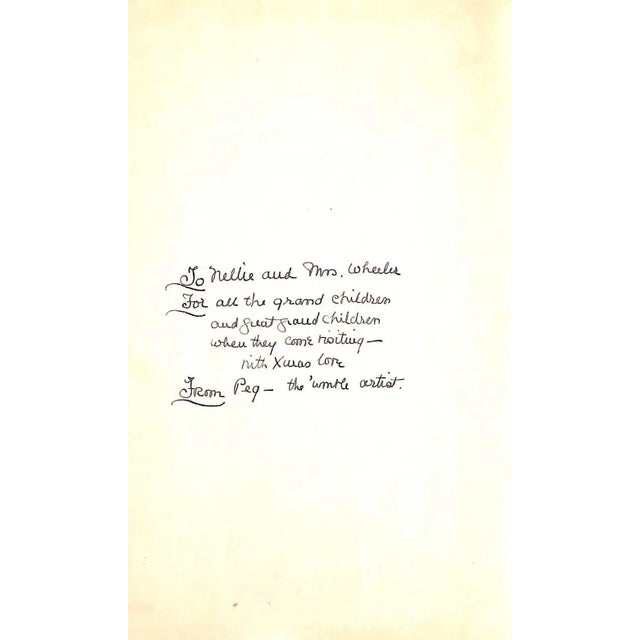 To Nellie and Mrs. Wheeler
For all the grand children
and great grand children
when they come visiting—
with Xmas love
From Peg— the 'umble artist.